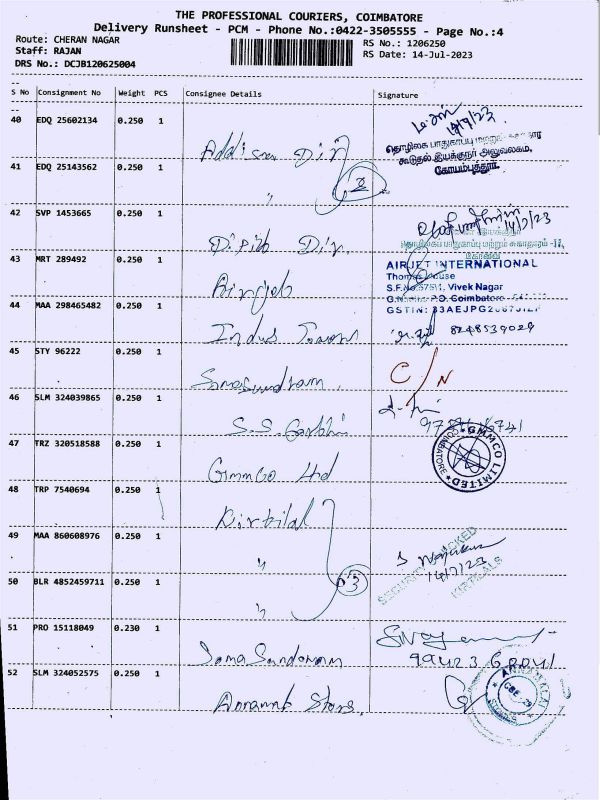 THE PROFESSIONAL COURIERS, COIMBATORE
Delivery Runsheet - PCM - Phone No.:0422-3505555 - Page No.:4
Route: CHERAN NAGAR
RS No.: 1206250
Staff: RAJAN
RS Date: 14-Jul-2023
DRS No.: DCJB120625004
S No Consignment No Weight PCS Consignee Details Signature
40 EDQ 25602134 0.250 1
தொழிலக பாதுகாப்பு மற்றும்
கூடுதல் இயக்குநர் அலுவலகம்,
கோயம்புத்தூர்.
41 EDQ 25143562 0.250 1
2
42 SVP 1453665 0.250 1
14/7/23
தொழிலக பாதுகாப்பு மற்றும் சுகாதாரம்
கோவை
43 MRT 289492 0.250 1
AIRJET INTERNATIONAL
Thomas House
Vivek Nagar
Coimbatore
GSTIN:
44 MAA 298465482 0.250 1
Indus Tower
8248539029
45 STY 96222 0.250 1
Somasundram.
C/N
46 SLM 324039865 0.250 1
S.S. Gandhi
47 TRZ 320518588 0.250 1
Gmmco Ltd
GMMCO LIMITED
COIMBATORE
48 TRP 7540694 0.250 1
Kirtilal
49 MAA 860608976 0.250 1
"
14/7/23
SECURITY CHECKED
KIRTILALS
50 BLR 4852459711 0.250 1
"
3
51 PRO 15118049 0.230 1
Soma Sundaram
52 SLM 324052575 0.250 1
Annamb Stors.
ANNAMALAI
STORES
CBE - 29